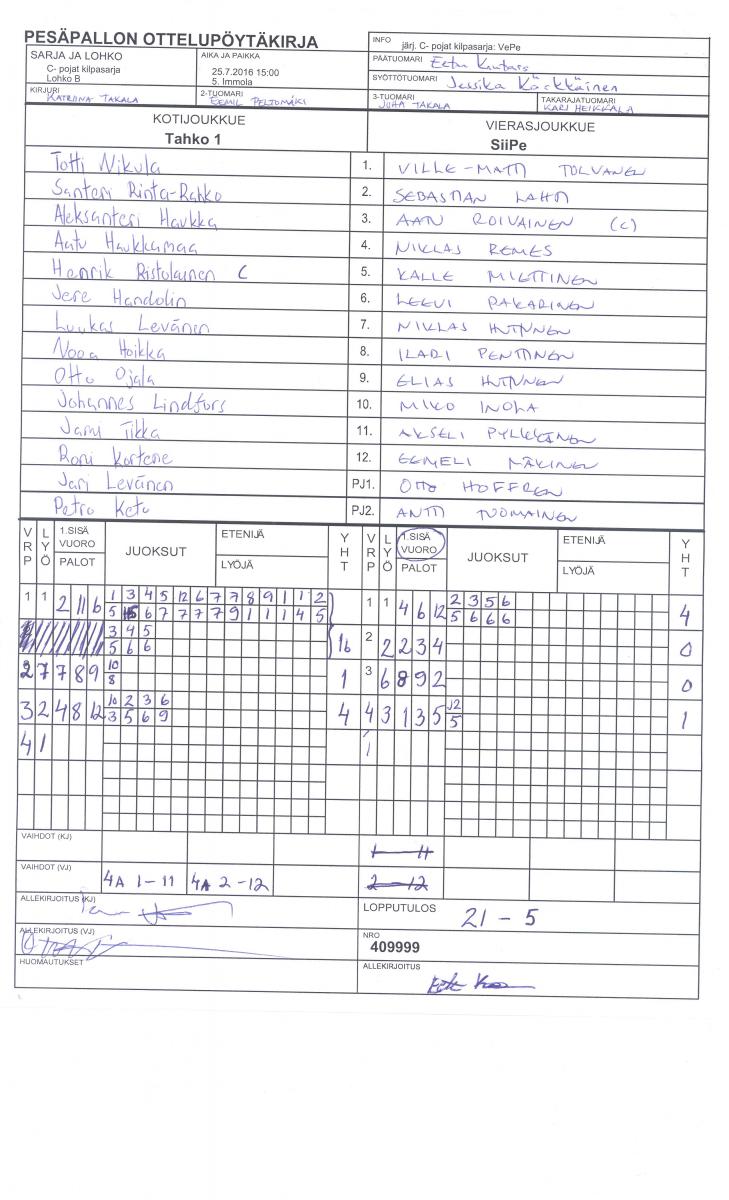 PESÄPALLON OTTELUPÖYTÄKIRJA
INFO järj. C- pojat kilpasarja: VePe
SARJA JA LOHKO
C- pojat kilpasarja
Lohko B
AIKA JA PAIKKA
25.7.2016 15:00
5. Immola
PÄÄTUOMARI Eetu
SYÖTTÖTUOMARI Jessika Käckkäinen
KIRJURI KATRIINA TAKALA
2-TUOMARI EEMIL PELTOMÄKI
3-TUOMARI JUHA TAKALA
TAKARAJATUOMARI KARI HEIKKALA
KOTIJOUKKUE
Tahko 1
VIERASJOUKKUE
SiiPe
Totti Nikula 1. VILLE-MATTI TOLVANEN
Santeri Rinta-Rahko 2. SEBASTIAN LAHTI
Aleksanteri Haukka 3. AATU ROIVAINEN (C)
Aatu Haukkamaa 4. NIKLAS REMES
Henrik Ristolainen C 5. KALLE MIETTINEN
Jere Handolin 6. LEEVI PAKARINEN
Luukas Levänen 7. NIKLAS HUTNNEN
Nooa Hoikka 8. ILARI PENTTINEN
Otto Ojala 9. ELIAS HUTNNEN
Johannes Lindfors 10. MIKO INOLA
Jami Iikka 11. AKSELI PYLKKÄNEN
Roni Kortene 12. EEMELI MÄKINEN
Jari Levänen PJ1. OTTO HOFFREN
Petro Keto PJ2. ANTTI TUOMAINEN
VRP LYÖ 1.SISÄ VUORO PALOT JUOKSUT ETENIJÄ LYÖJÄ YHT VRP LYÖ 1.SISÄ VUORO PALOT JUOKSUT ETENIJÄ LYÖJÄ YHT
1 3 4 5 12 6 7 7 8 9 1 1 2 2 3 5 6
1 1 2 11 6 1 1 4 6 12 4
5 6 7 7 7 7 9 1 1 1 4 5 5 6 6 6
3 4 5
16 2 2 2 3 4 0
5 6 6
10
2 7 7 8 9 1 3 6 8 9 2 0
8
10 2 3 6 12
3 2 4 8 12 4 4 3 1 3 5 1
3 5 6 9 5
4 1 1
VAIHDOT (KJ) 1-11
VAIHDOT (VJ) 4A 1-11 4A 2-12 2-12
ALLEKIRJOITUS (KJ)
LOPPUTULOS 21 - 5
ALLEKIRJOITUS (VJ)
NRO
409999
HUOMAUTUKSET
ALLEKIRJOITUS